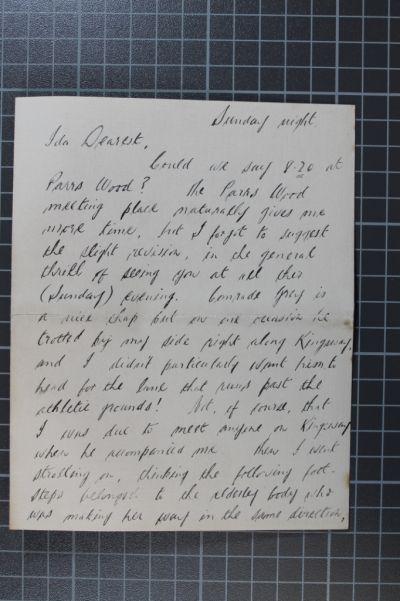 Sunday night.
Ida Dearest,
Could we say 8-20 at
Parrs Wood? The Parrs Wood
meeting place naturally gives me
more time, but I forgot to suggest
the slight revision, in the general
thrill of seeing you at all this
(Sunday) evening. Comrade Grey is
a nice chap but on one occasion he
trotted by my side right along Kingsway,
and I didn't particularly want him to
head for the lane that runs past the
athletic grounds! Not, of course, that
I was due to meet anyone on Kingsway
when he accompanied me. Then I went
strolling on, thinking the following foot-
steps belonged to the elderly body who
was making her way in the same direction,